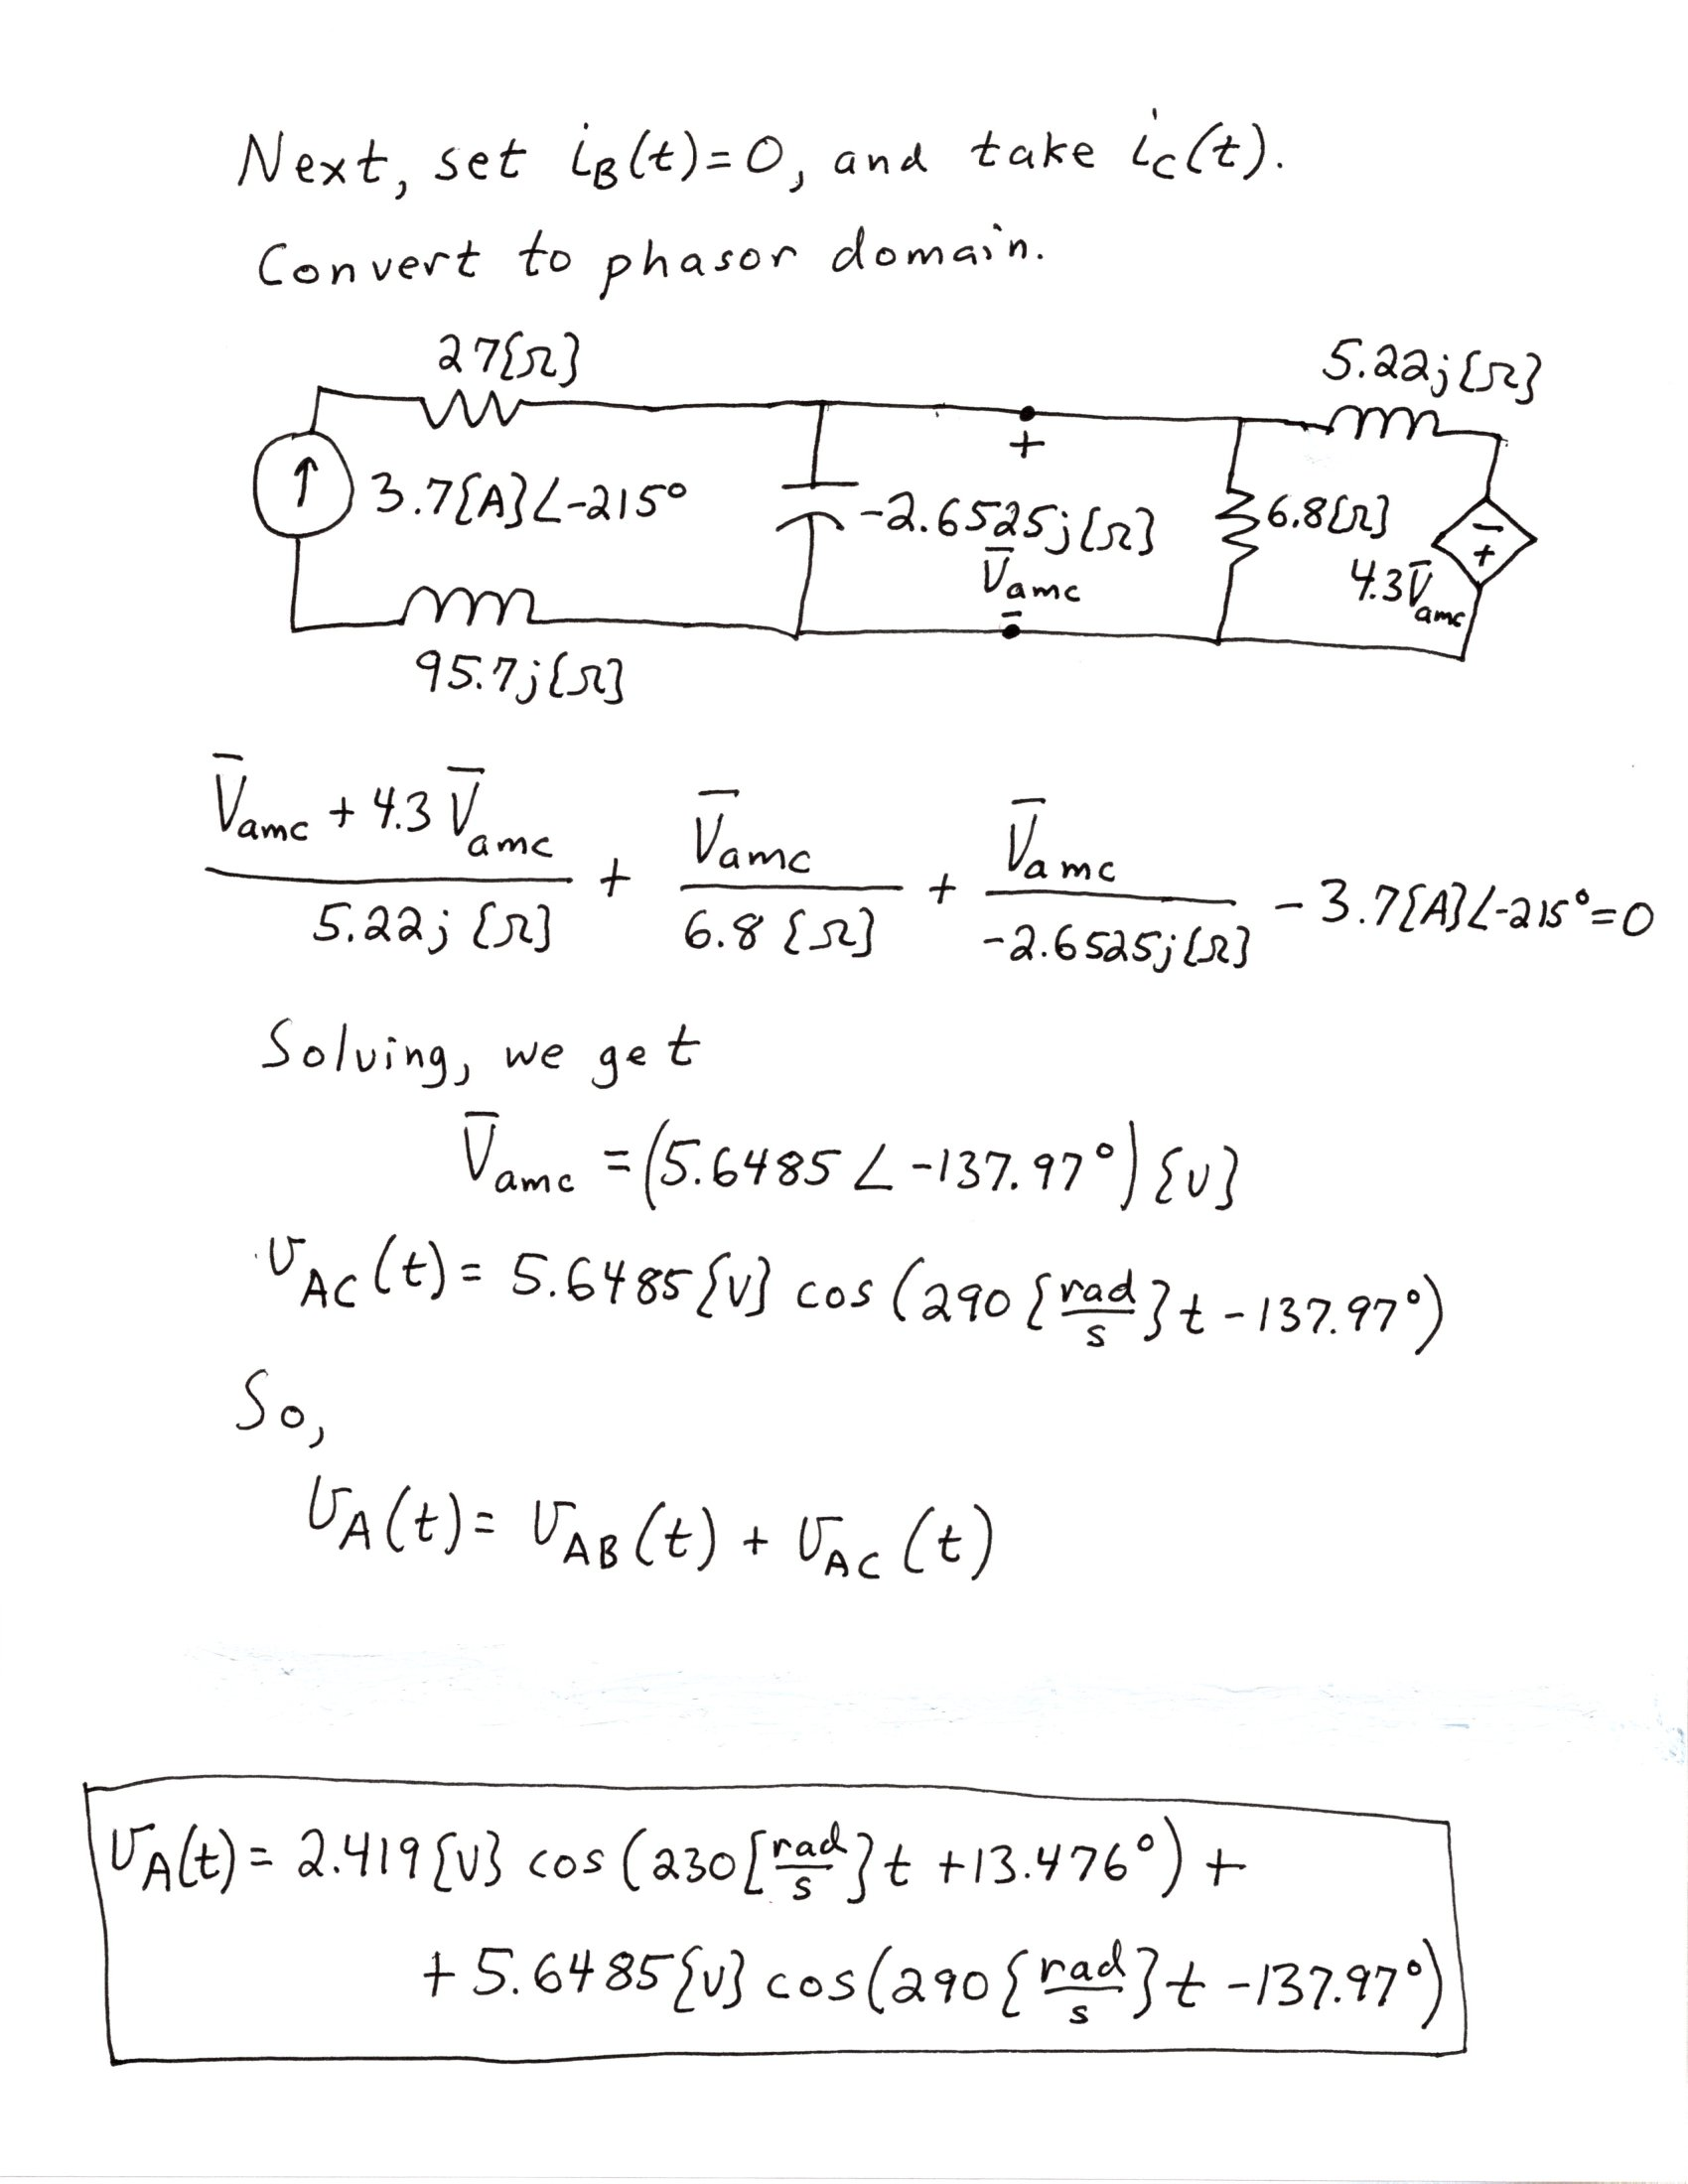 Next, set i_B(t)=0, and take i_C(t).
Convert to phasor domain.
27[Ω]
5.22j[Ω]
3.7[A]∠-215°
-2.6525j[Ω]
6.8[Ω]
+
V̄amc
-
-
+
4.3V̄amc
95.7j[Ω]
(V̄amc + 4.3 V̄amc)/(5.22j [Ω]) + V̄amc/(6.8 [Ω]) + V̄amc/(-2.6525j[Ω]) - 3.7[A]∠-215°=0
Solving, we get
V̄amc = (5.6485 ∠ -137.97°) [V]
v_AC(t) = 5.6485[V] cos(290 [rad/s] t - 137.97°)
So,
v_A(t) = v_AB(t) + v_AC(t)
v_A(t) = 2.419[V] cos(230[rad/s] t + 13.476°) +
+ 5.6485[V] cos(290[rad/s] t - 137.97°)